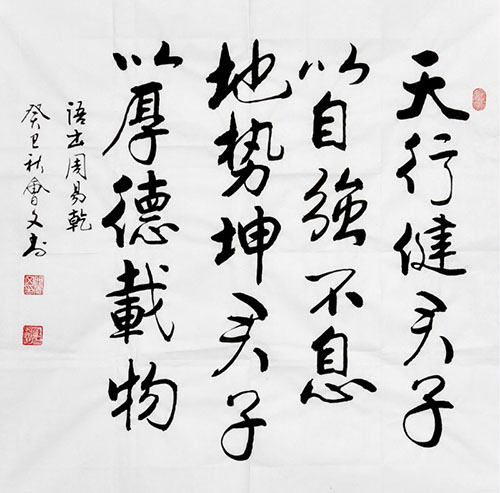 天行健君子
以自強不息
地势坤君子
以厚德載物
语出周易乾
癸巳秋曾文书